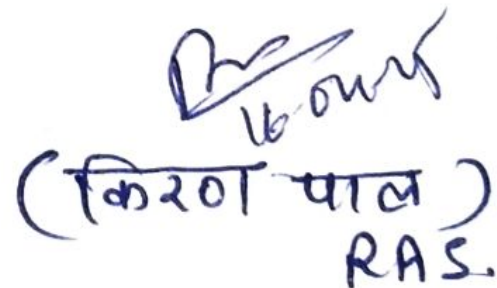 (किरण पाल)
RAS.